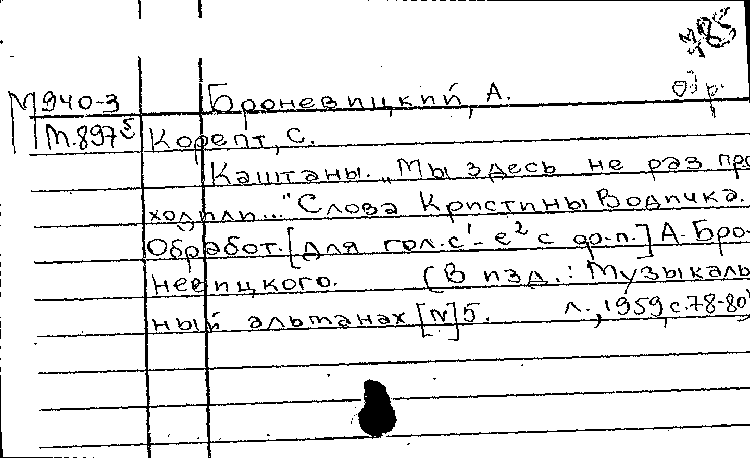 785
М940-3 Броневицкий, А. обр.
М.897⁵ Корепт, С.
Каштаны. „Мы здесь не раз про-
ходили..." Слова Кристины Водичка.
Обработ. [для гол. c¹-e² с фо-п.] А. Бро-
невицкого. (В изд.: Музыкаль-
ный альманах [№] 5. Л., 1959, с. 78-80)